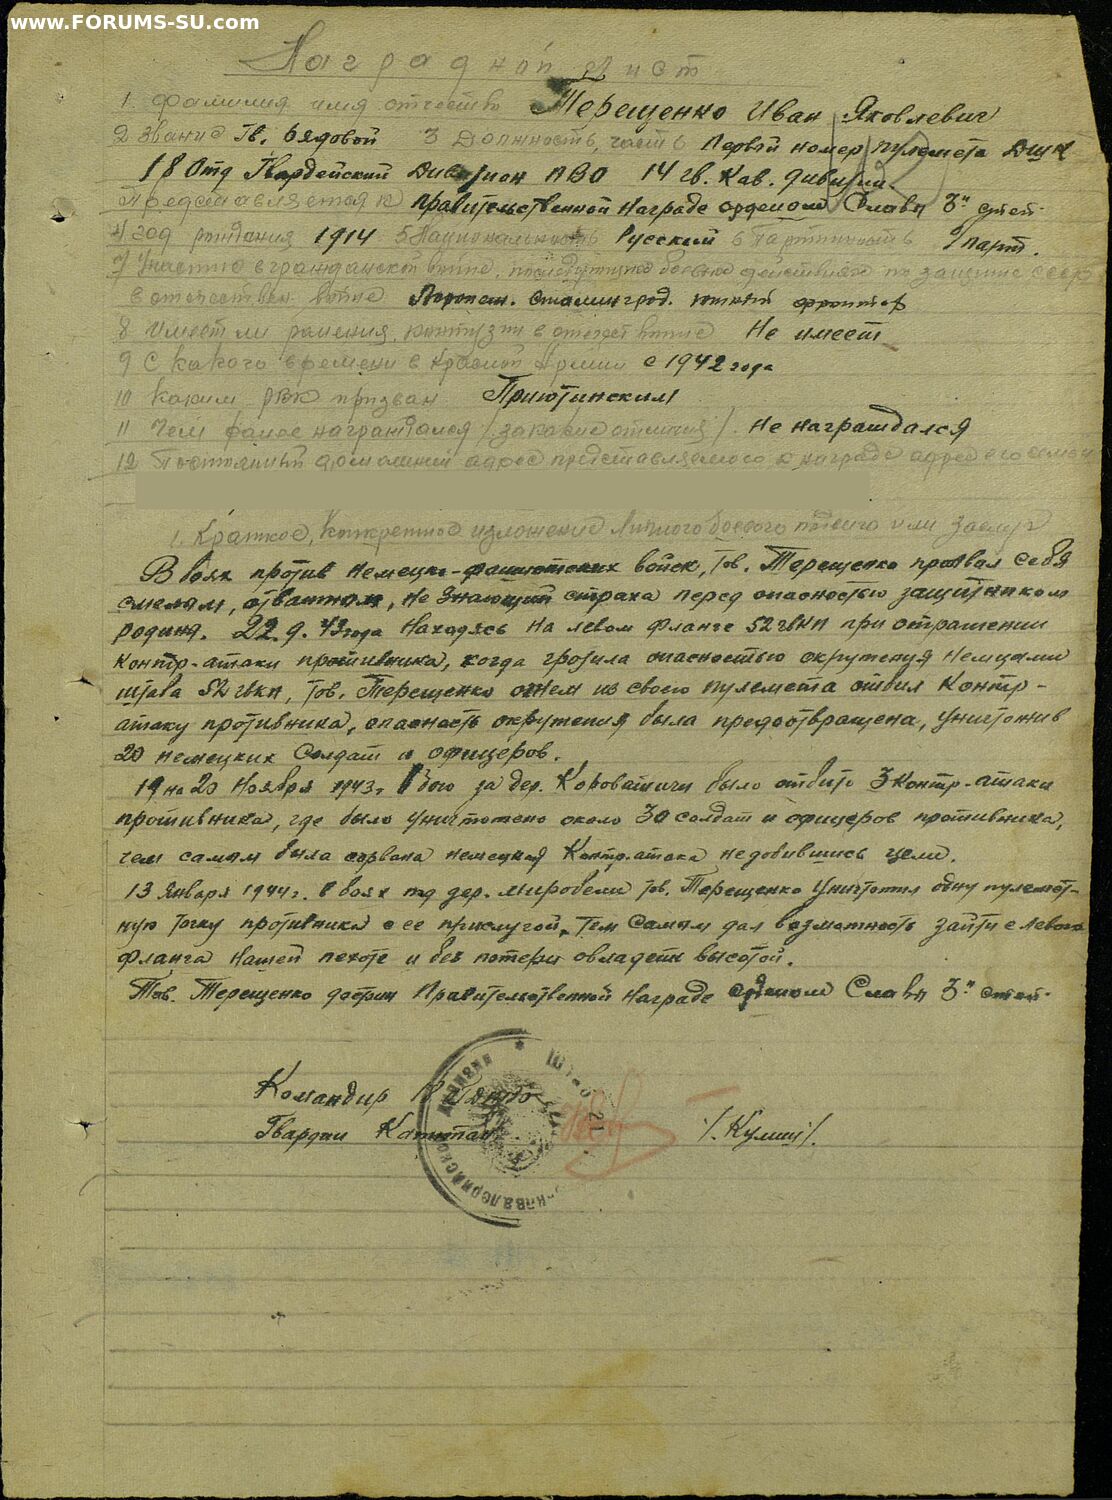 www.FORUMS-SU.com
Наградной лист
1. Фамилия имя отчество Терещенко Иван Яковлевич
2 Звание Гв. рядовой 3 Должность, часть Первый номер пулемета ДШК
18 Отд Гвардейский Дивизион ПВО 14 гв. Кав. дивизии.
Представляется к правительственной награде орденом Славы 3й степ.
4 год рождения 1914 5 Национальность Русский 6 Партийность
7 Участие в гражданской войне, последующих боевых действиях по защите СССР
в отечествен. войне Сталинград. южный фронтор
8 Имеет ли ранения, контузии в отечест войне Не имеет
9 С какого времени в Красной Армии с 1942 года
10 Каким РВК призван Приютинским
11 Чем ранее награждался /за какие отличия/. Не награждался
12 Постоянный домашний адрес представляемого к награде адрес его семьи
1. Краткое, конкретное изложение личного боевого подвига или заслуг
В боях против немецко-фашистских войск, тов. Терещенко проявил себя
смелым, отважным, не знающий страха перед опасностью защитником
родины. 22.9.43 года находясь на левом фланге 52 гвкп при отражении
контр-атаки противника, когда грозила опасностью окружения немцами
штаба 52 гвкп, тов. Терещенко огнем из своего пулемета отбил контр-
атаку противника, опасность окружения была предотвращена, уничтожив
20 немецких солдат и офицеров.
19 на 20 ноября 1943 г. В бою за дер. Короватичи было отбито 3 контр-атаки
противника, где было уничтожено около 30 солдат и офицеров противника,
чем самым была сорвана немецкая контр-атака не добившись цели.
13 января 1944 г. в боях под дер. Мировели тов. Терещенко уничтожил одну пулемет-
ную точку противника с ее прислугой, тем самым дал возможность зайти с левого
фланга нашей пехоте и без потери овладеть высотой.
Тов. Терещенко достоин Правительственной награде орденом Славы 3й степ.
Командир
Гвардии Капитан /.Кулиш/.